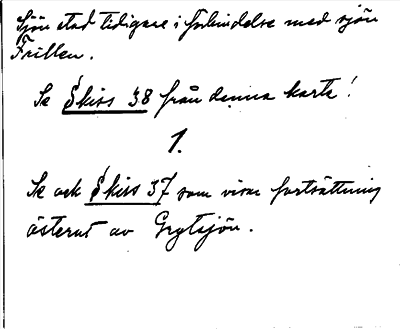 Sjön stod tidigare i förbindelse med sjön
Frillen.
Se Skiss 38 från denna karta!
1.
Se och Skiss 37 som visar fortsättning
österut av Grytsjön.